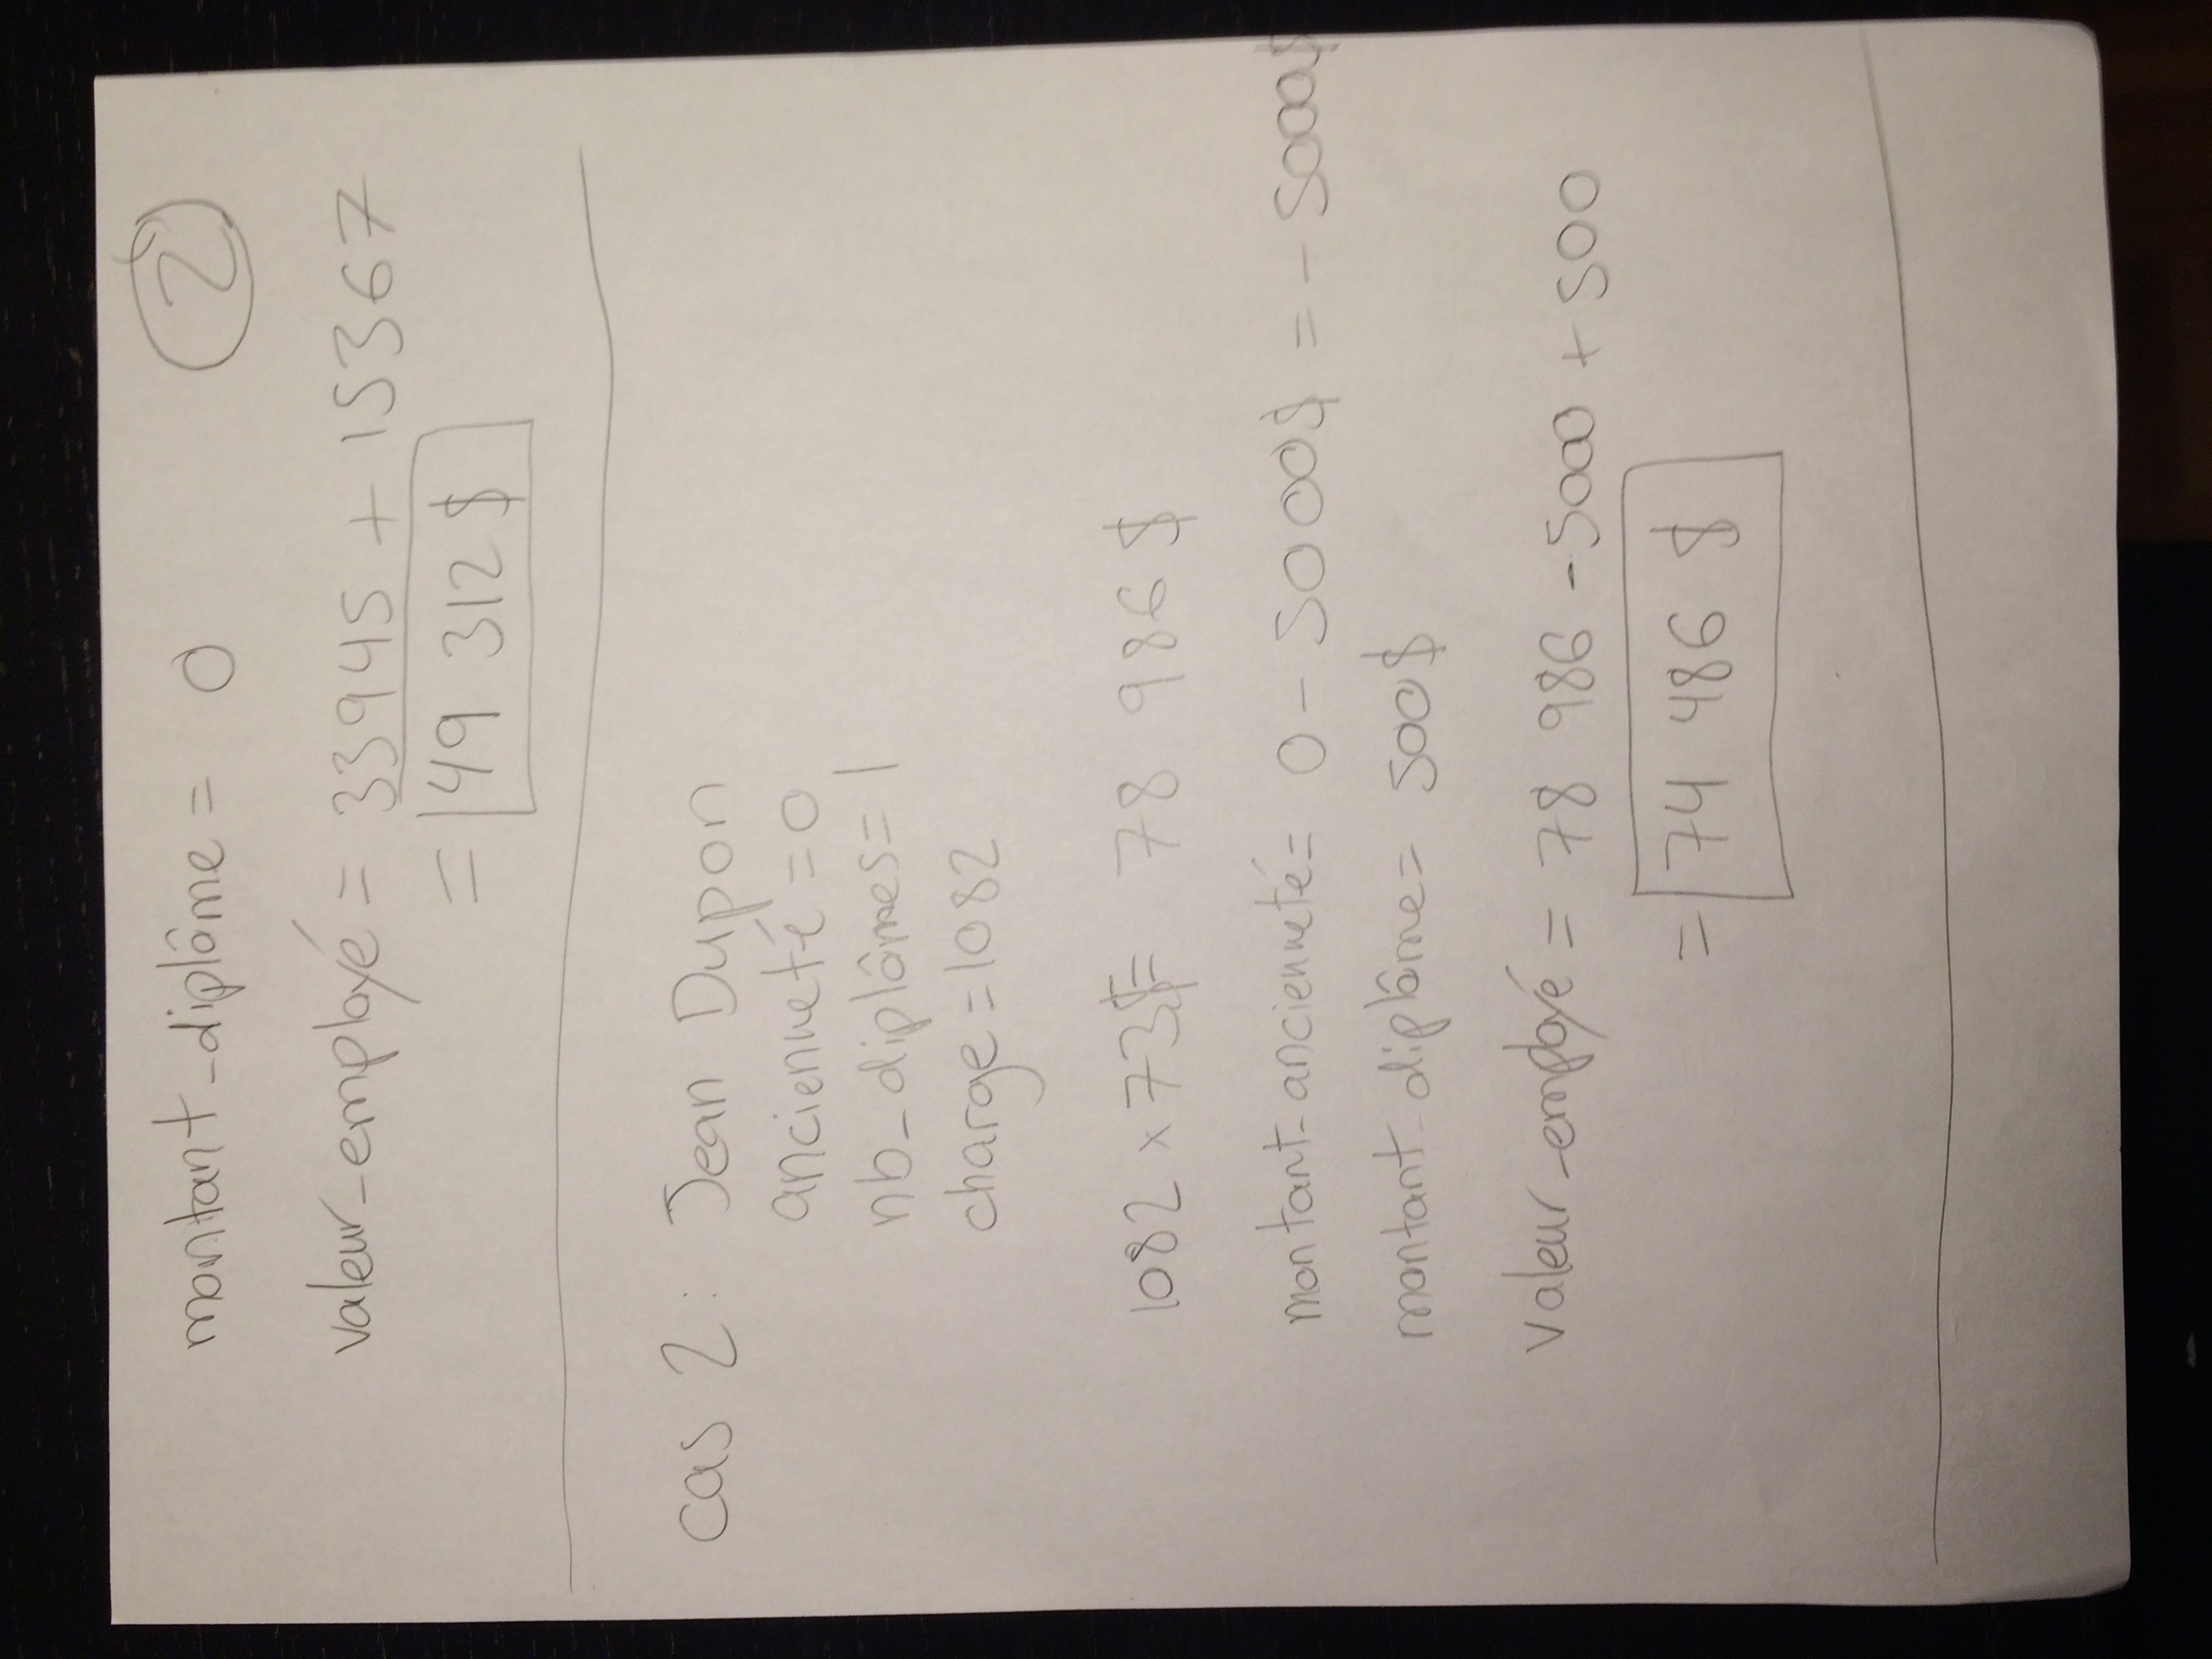 montant_diplôme = 0
2
valeur_employé = 33945 + 15367
= 49 312 $
cas 2 : Jean Dupon
ancienneté = 0
nb_diplômes = 1
charge = 1082
1082 x 73$ = 78 986 $
montant_ancienneté = 0 - 5000$ = - 5000$
montant_diplôme = 500$
valeur_employé = 78 986 - 5000 + 500
= 74 486 $